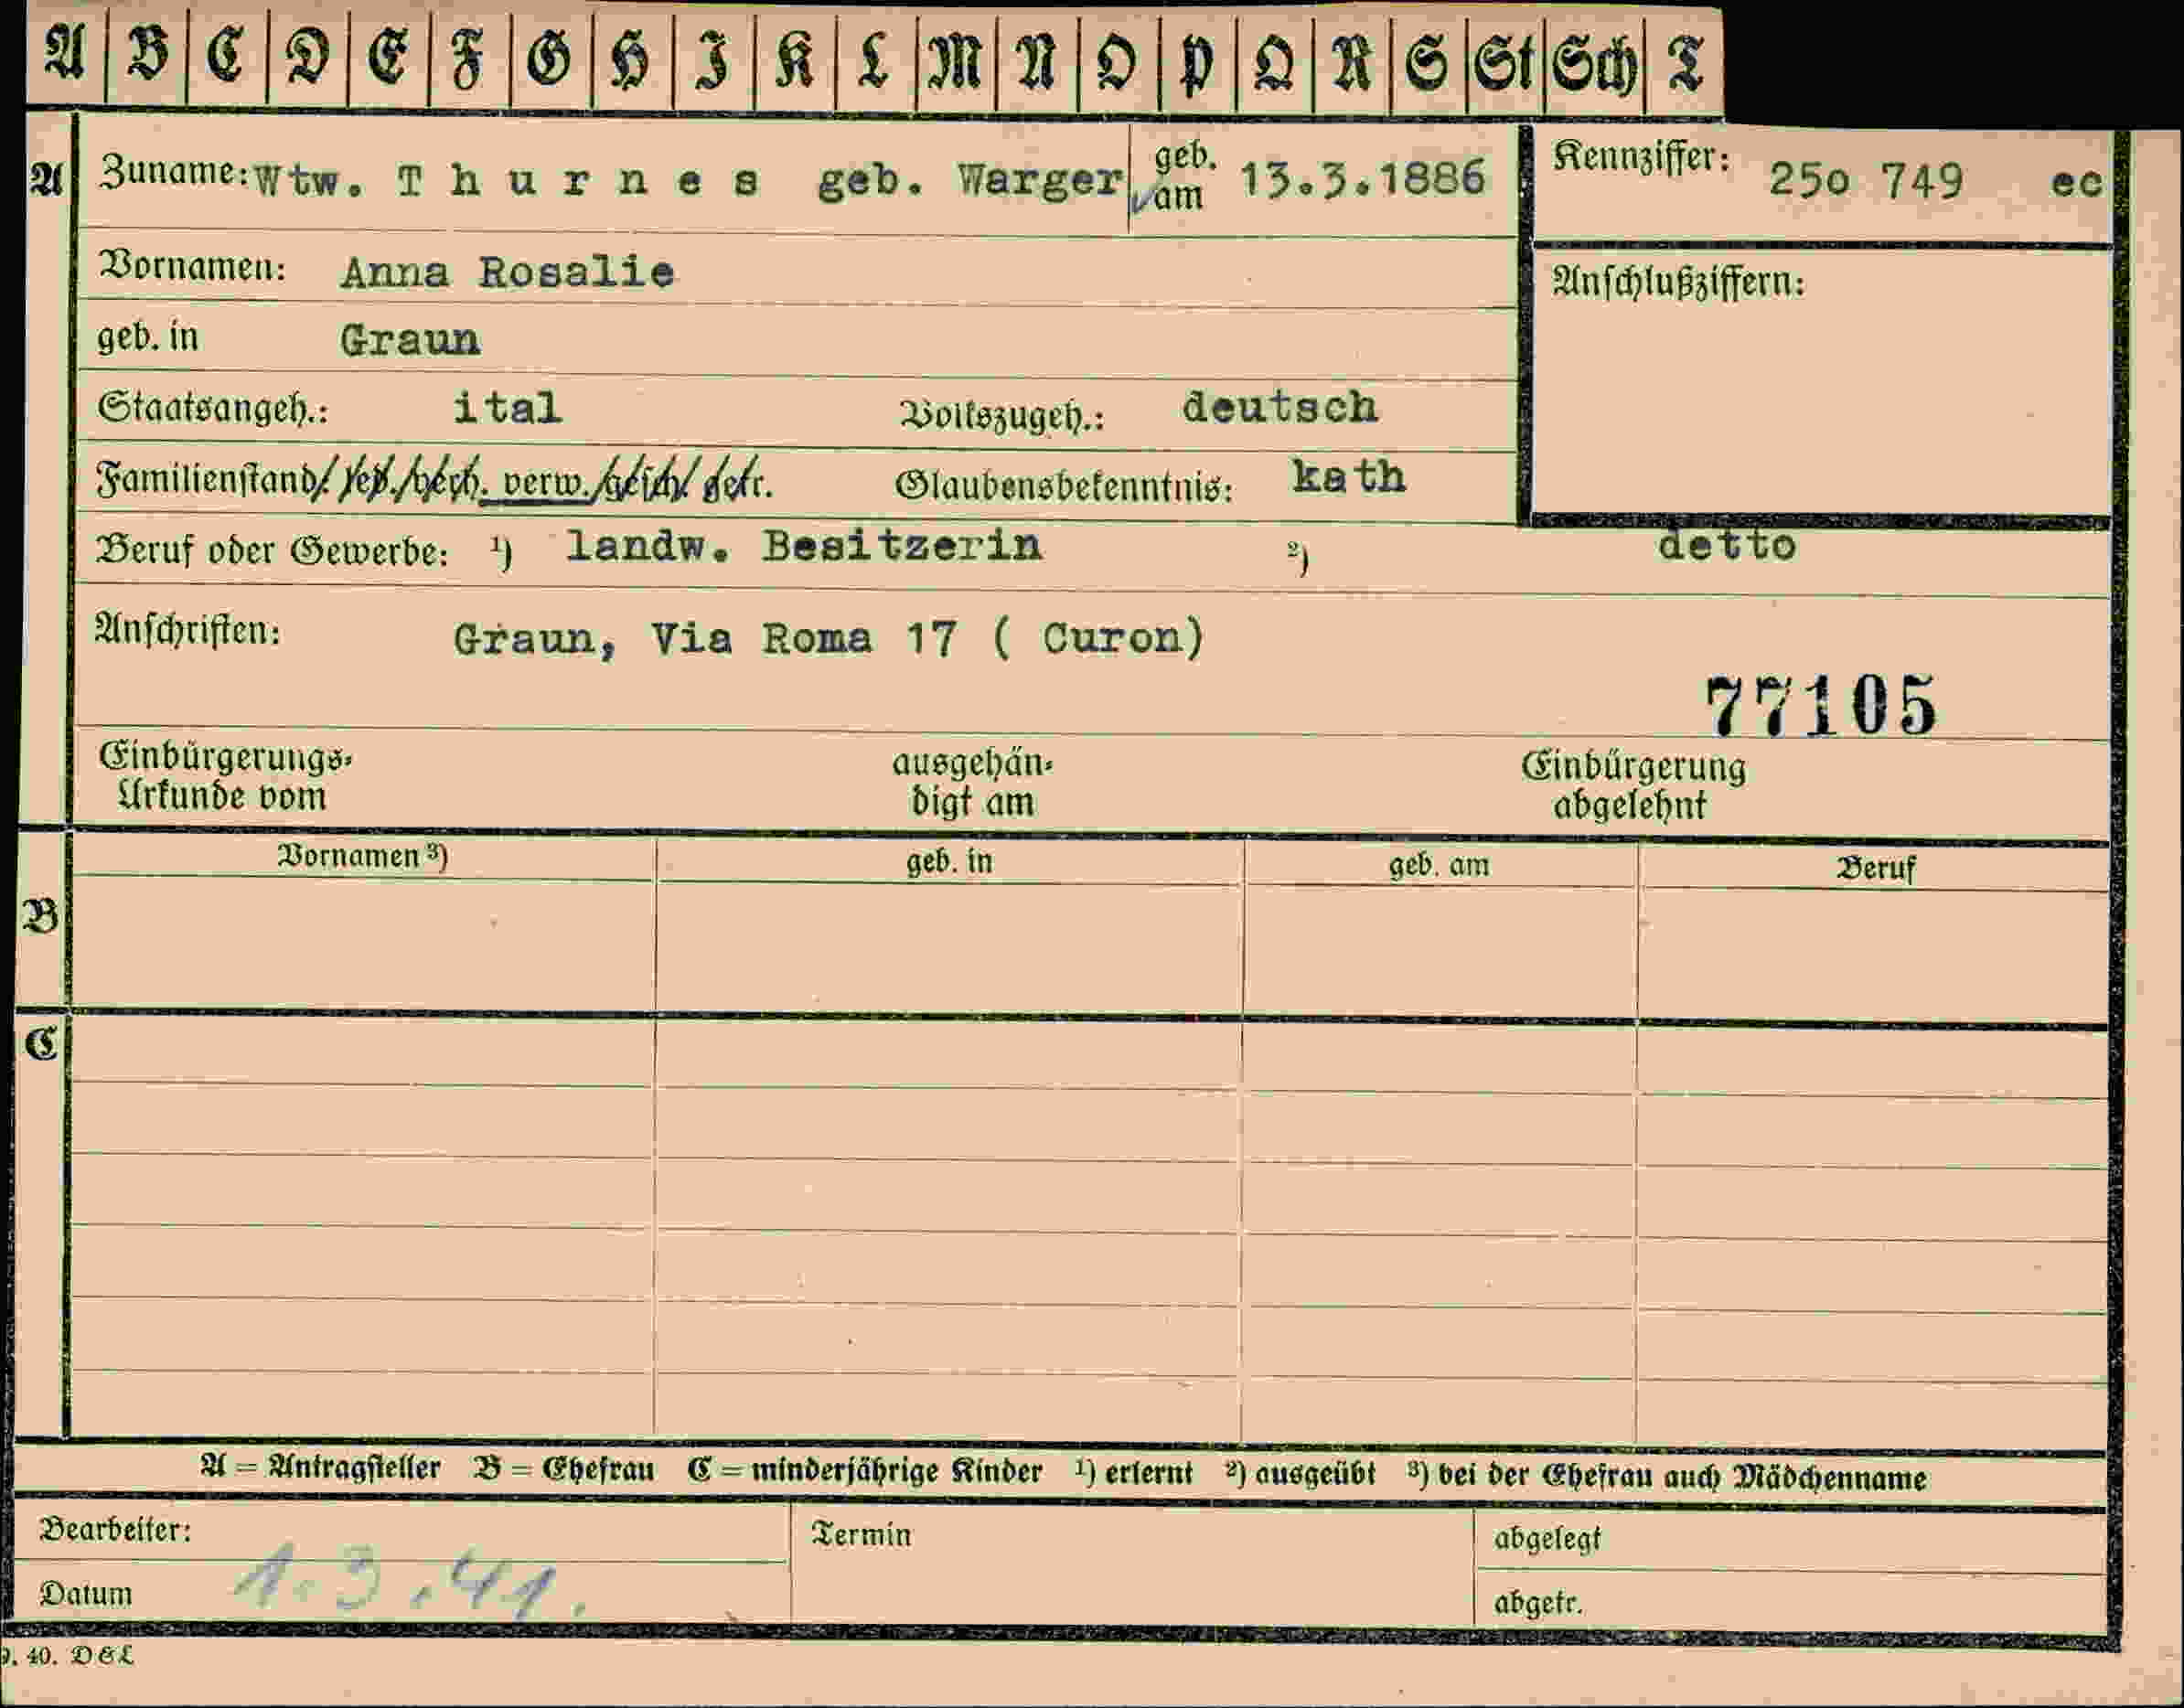 A B C D E F G H I K L M N O P Q R S St Sch T
A Zuname: Wtw. T h u r n e s geb. Warger geb. am 13.3.1886 Kennziffer: 25o 749 ec
Vornamen: Anna Rosalie
Anschlußziffern:
geb. in Graun
Staatsangeh.: ital Volkszugeh.: deutsch
Familienstand/ led./verh. verw./gesch/ getr. Glaubensbekenntnis: kath
Beruf oder Gewerbe: ¹) landw. Besitzerin ²) detto
Anschriften: Graun, Via Roma 17 ( Curon)
77105
Einbürgerungs- ausgehän- Einbürgerung
Urkunde vom digt am abgelehnt
Vornamen ³) geb. in geb. am Beruf
B
C
A = Antragsteller B = Ehefrau C = minderjährige Kinder ¹) erlernt ²) ausgeübt ³) bei der Ehefrau auch Mädchenname
Bearbeiter: Termin abgelegt
Datum 1.3.41. abgetr.
9. 40. D&L